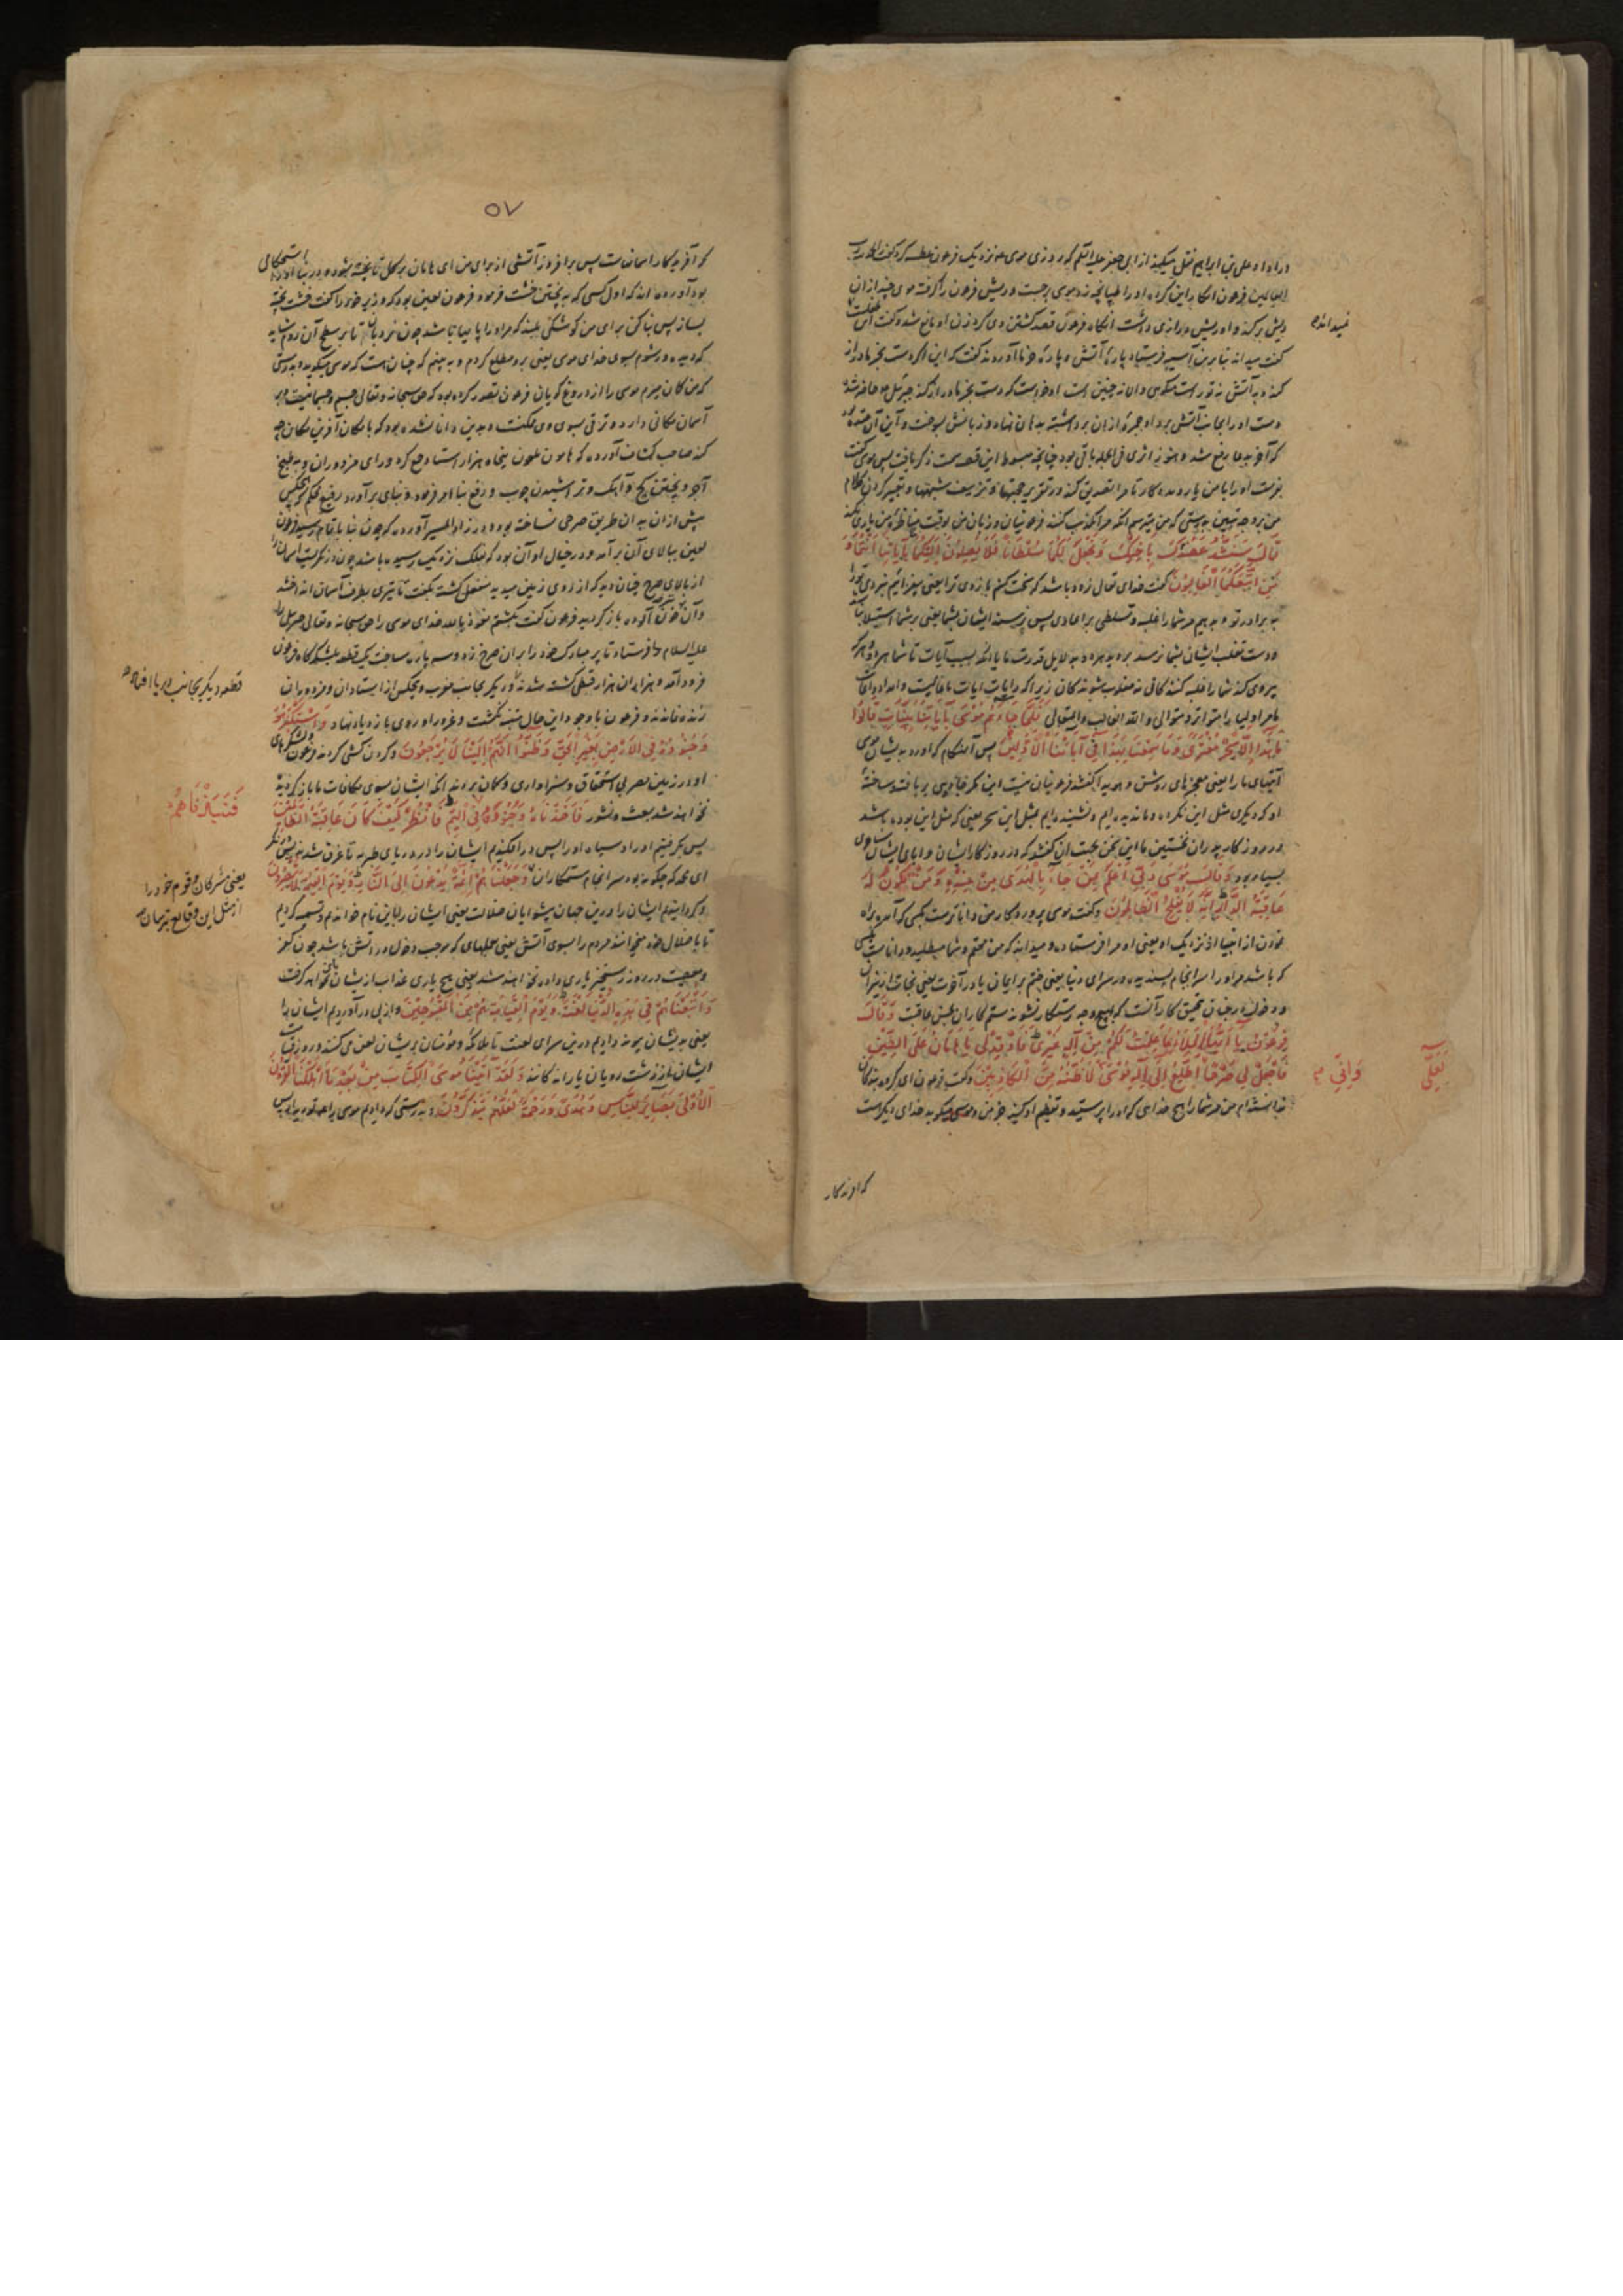 در اداء علی بن ابراهیم نقل میکند از ابی جعفر علیه السلام که روزی موسی نزدیک فرعون عطسه کرد گفت الحمد لله رب
العالمین فرعون انکار این کرده او را طپانچه زد موسی برجست و ریش فرعون را گرفته موی چند از ان
ریش برکند و او ریش درازی داشت انگاه فرعون قصد کشتن وی کرد زن او مانع شد و گفت این طفلست
نمیداند
گفت میداند بنابرین آسیه فرستاد پارهٔ آتش و پارهٔ خرما آوردند گفت که این اگر دست بخرما دراز
کند
دست او را بجانب آتش برد او جمرهٔ از ان برداشته بدهان نهاد و زبانش بسوخت و این آن عقده
که آخر بدعا رفع شد و هنوز اثری فی الجمله باقی بود چنانچه مبسوط این قصه سمت ذکر یافت پس موسی گفت
بفرست او را با من یار و مددکار تا مرا تصدیق کند در تقریر حجتها و تزییف شبهتها و تعبیر کردن کلام
من بر وجه تبیین بدرستی که من میترسم انکه مرا تکذیب کنند فرعونیان و زبان من بوقت مناظره من یاری نکند
قَالَ سَنَشُدُّ عَضُدَكَ بِأَخِيكَ وَنَجْعَلُ لَكُمَا سُلْطَانًا فَلَا يَصِلُونَ إِلَيْكُمَا بِآيَاتِنَا أَنْتُمَا وَ
مَنِ اتَّبَعَكُمَا الْغَالِبُونَ گفت خدای تعالی زود باشد که سخت کنم بازوی ترا یعنی بیفزایم نیروی تو را
به برادر تو و بدهیم مر شما را غلبه و تسلطی بر اعادی پس نرسند ایشان بشما یعنی بر شما استیلا نیابند
و دست تغلب ایشان بشما نرسد بروید هر دو به دلایل قدرت ما یا انکه بسبب آیات ما شما هر دو و هرکه
پیروی کند شما را غلبه کنندگانی نه مغلوب شوندگان زیرا که رایات آیات ما غالبست و امداد و اعانت
ما مر اولیا را متواتر و متوالی و الله الغالب و المتعالی فَلَمَّا جَاءَهُمْ مُوسَى بِآيَاتِنَا بَيِّنَاتٍ قَالُوا
مَا هَذَا إِلَّا سِحْرٌ مُفْتَرًى وَمَا سَمِعْنَا بِهَذَا فِي آبَائِنَا الْأَوَّلِينَ پس آن هنگام که آورد بدیشان موسی
آیتهای ما را یعنی معجزهای روشن و هویدا گفتند فرعونیان نیست این مگر جادویی بربافته و ساختهٔ
او که دیگری مثل این نکرده و ما ندیده‌ایم و نشنیده‌ایم بمثل این سحر یعنی که مثل این بوده باشد
در روزگار پدران نخستین ما این سخن بجهت آن گفتند که در روزگار ایشان و ابای ایشان ساحری
بسیار بود وَقَالَ مُوسَى رَبِّي أَعْلَمُ بِمَنْ جَاءَ بِالْهُدَى مِنْ عِنْدِهِ وَمَنْ تَكُونُ لَهُ
عَاقِبَةُ الدَّارِ إِنَّهُ لَا يُفْلِحُ الظَّالِمُونَ و گفت موسی پروردگار من داناترست بکسی که آمد براه
نمودن از نزدیک او یعنی او مرا فرستاده و میداند که من محقم و شما مبطلید و داناست بکسی
که باشد مر او را سرانجام پسندیده در سرای دنیا یعنی ختم بر ایمان یا در آخرت یعنی نجات از نیران
و دخول در جنان بتحقیق کار آنست که بهیچ وجه رستگار نشوند ستم‌کاران بحسن عاقبت وَقَالَ
فِرْعَوْنُ يَا أَيُّهَا الْمَلَأُ مَا عَلِمْتُ لَكُمْ مِنْ إِلَهٍ غَيْرِي فَأَوْقِدْ لِي يَا هَامَانُ عَلَى الطِّينِ
فَاجْعَلْ لِي صَرْحًا لَعَلِّي أَطَّلِعُ إِلَى إِلَهِ مُوسَى وَإِنِّي لَأَظُنُّهُ مِنَ الْكَاذِبِينَ و گفت فرعون ای گروه بندگان
ندانسته‌ام من مر شما را هیچ خدایی که او را پرستید و تعظیم او کنید جز من و موسی میگوید خدای دیگر است
که افریدکار
۵۷
که آفریدکار آسمانست پس برافروز آتشی از برای من ای هامان بر گل تا پخته شود و در بنا او را استحکامی
بود آورده‌اند که اول کسی که به پختن خشت فرمود فرعون لعین بود که وزیر خود را گفت خشت پخته
بساز پس بنا کن برای من کوشکی بلند که مر او را پایها باشد چون نردبان تا بر سطح آن روم شاید
که دیده‌ور شوم بسوی خدای موسی یعنی برو مطلع گردم و به بینم که چنان هست که موسی میگوید و بدرستی
که من گمان میبرم موسی را از دروغ گویان فرعون تصور کرده بود که حق سبحانه و تعالی جسم و جسمانیست و بر
آسمان مکانی دارد و ترقی بسوی وی ممکنست و بدین دانا نشده بود که با مکان آفرین مکان چه
کند صاحب کشاف آورده که هامون ملعون پنجاه هزار استاد جمع کرد ورای مزدوران و به طبخ
آجر و پختن گچ و آهک و تراشیدن چوب و رفع بنا امر فرمود و بنای برآورد رفیع محکم که هیچکس
پیش از ان بدان طریق صرحی نساخته بود و در زاد المسیر آورده که چون بنا باتمام رسید فرعون
لعین ببالای آن برآمد و در خیال او آن بود که بفلک نزدیک رسیده باشد چون در نگریست آسمان را
از بالای صرح چنان دید که از روی زمین میدید منفعل گشته بگفت تا تیری بطرف آسمان انداختند
و آن تیر خون آلوده باز گردید فرعون گفت بکشتم نعوذ بالله خدای موسی را حق سبحانه و تعالی جبرئیل
علیه السلام را فرستاد تا پر مبارک خود را بران صرح زد و سه پاره ساخت یک قطعه بلشکرگاه فرعون
فرود آمد و هزاران هزار قبطی کشته شدند و دیگری بجانب مغرب و هیچکس از استادان و مزدوران
قطعه دیگر بجانب دریا افتاد
زنده نماندند و فرعون با وجود این حال متنبه نگشت و غرور او روی بازدیاد نهاد وَاسْتَكْبَرَ هُوَ
وَجُنُودُهُ فِي الْأَرْضِ بِغَيْرِ الْحَقِّ وَظَنُّوا أَنَّهُمْ إِلَيْنَا لَا يُرْجَعُونَ و گردن کشی کردند فرعون و لشکرهای
او در زمین مصر بی استحقاق و سزاواری و گمان بردند انکه ایشان بسوی مکافات ما باز گردیده
نخواهند شد ببعث و نشور فَأَخَذْنَاهُ وَجُنُودَهُ فِي الْيَمِّ فَانْظُرْ كَيْفَ كَانَ عَاقِبَةُ الظَّالِمِينَ
فَنَبَذْنَاهُمْ
پس بگرفتیم او را و سپاه او را پس درافکندیم ایشان را در دریای طبریه تا غرق شدند پس بنگر
ای محمد که چگونه بود سرانجام ستمکاران وَجَعَلْنَاهُمْ أَئِمَّةً يَدْعُونَ إِلَى النَّارِ وَيَوْمَ الْقِيَامَةِ لَا يُنْصَرُونَ
یعنی مشرکان قوم خود را
از مثل این وقایع بترسان
و گردانیدیم ایشان را درین جهان پیشوایان ضلالت یعنی ایشان را باین نام خواندیم و تسمیه کردیم
تا باضلال خود میخوانند مردم را بسوی آتش یعنی عملهای که موجب دخول در آتش باشد چون کفر
و معصیت و در روز رستخیز یاری داده نخواهند شد یعنی هیچ یاری عذاب از یشان باز نخواهد گرفت
وَأَتْبَعْنَاهُمْ فِي هَذِهِ الدُّنْيَا لَعْنَةً وَيَوْمَ الْقِيَامَةِ هُمْ مِنَ الْمَقْبُوحِينَ و از پی درآوردیم ایشان را
یعنی بدیشان پیوند دادیم درین سرای لعنت تا ملائکه و مؤمنان بریشان لعن می کنند و روز قیامت
ایشان از زشت رویان یا راندگانند وَلَقَدْ آتَيْنَا مُوسَى الْكِتَابَ مِنْ بَعْدِ مَا أَهْلَكْنَا الْقُرُونَ
الْأُولَى بَصَائِرَ لِلنَّاسِ وَهُدًى وَرَحْمَةً لَعَلَّهُمْ يَتَذَكَّرُونَ و بدرستی که دادیم موسی را توریه از پس